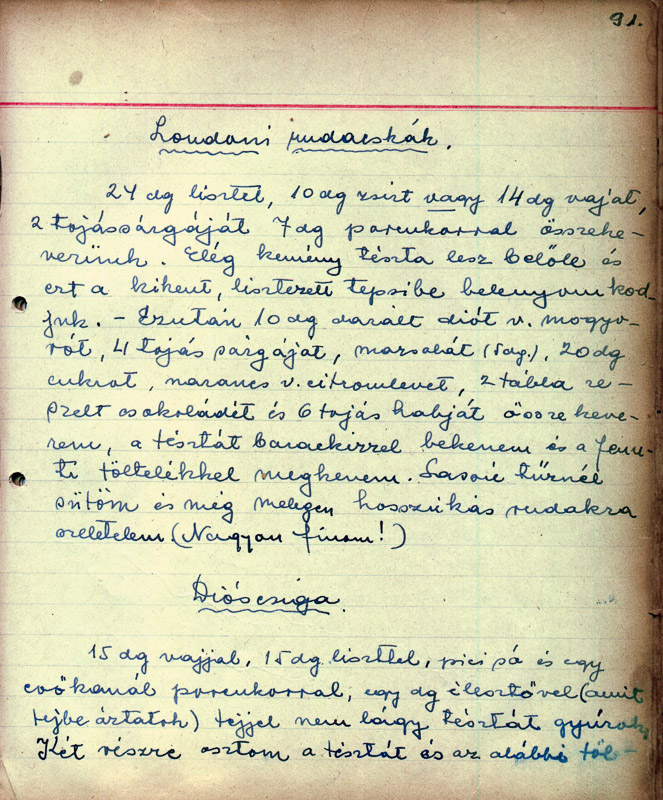 91.
Londoni rudacskák.
24 dg liszttel, 10 dg zsírt vagy 14 dg vajat,
2 tojássárgáját 7 dg porcukorral összeke-
verünk. Elég kemény tészta lesz belőle és
ezt a kikent, lisztezett tepsibe belenyomkod-
juk. – Ezután 10 dg darált diót v. mogyo-
rót, 4 tojás sárgáját, mazsolát (5 dg.), 20 dg
cukrot, narancs v. citromlevet, 2 tábla re-
szelt csokoládét és 6 tojás habját össze keve-
rem, a tésztát barackízzel bekenem és a fen-
ti töltelékkel megkenem. Lassú tűznél
sütöm és még melegen hosszúkás rudakra
szeletelem. (Nagyon finom!)
Dióscsiga.
15 dg vajjal, 15 dg liszttel, pici só és egy
evőkanál porcukorral, egy dg élesztővel (amit
tejbe áztatok) tejjel nem lágy tésztát gyúrok,
Két részre osztom a tésztát és az alábbi töl-